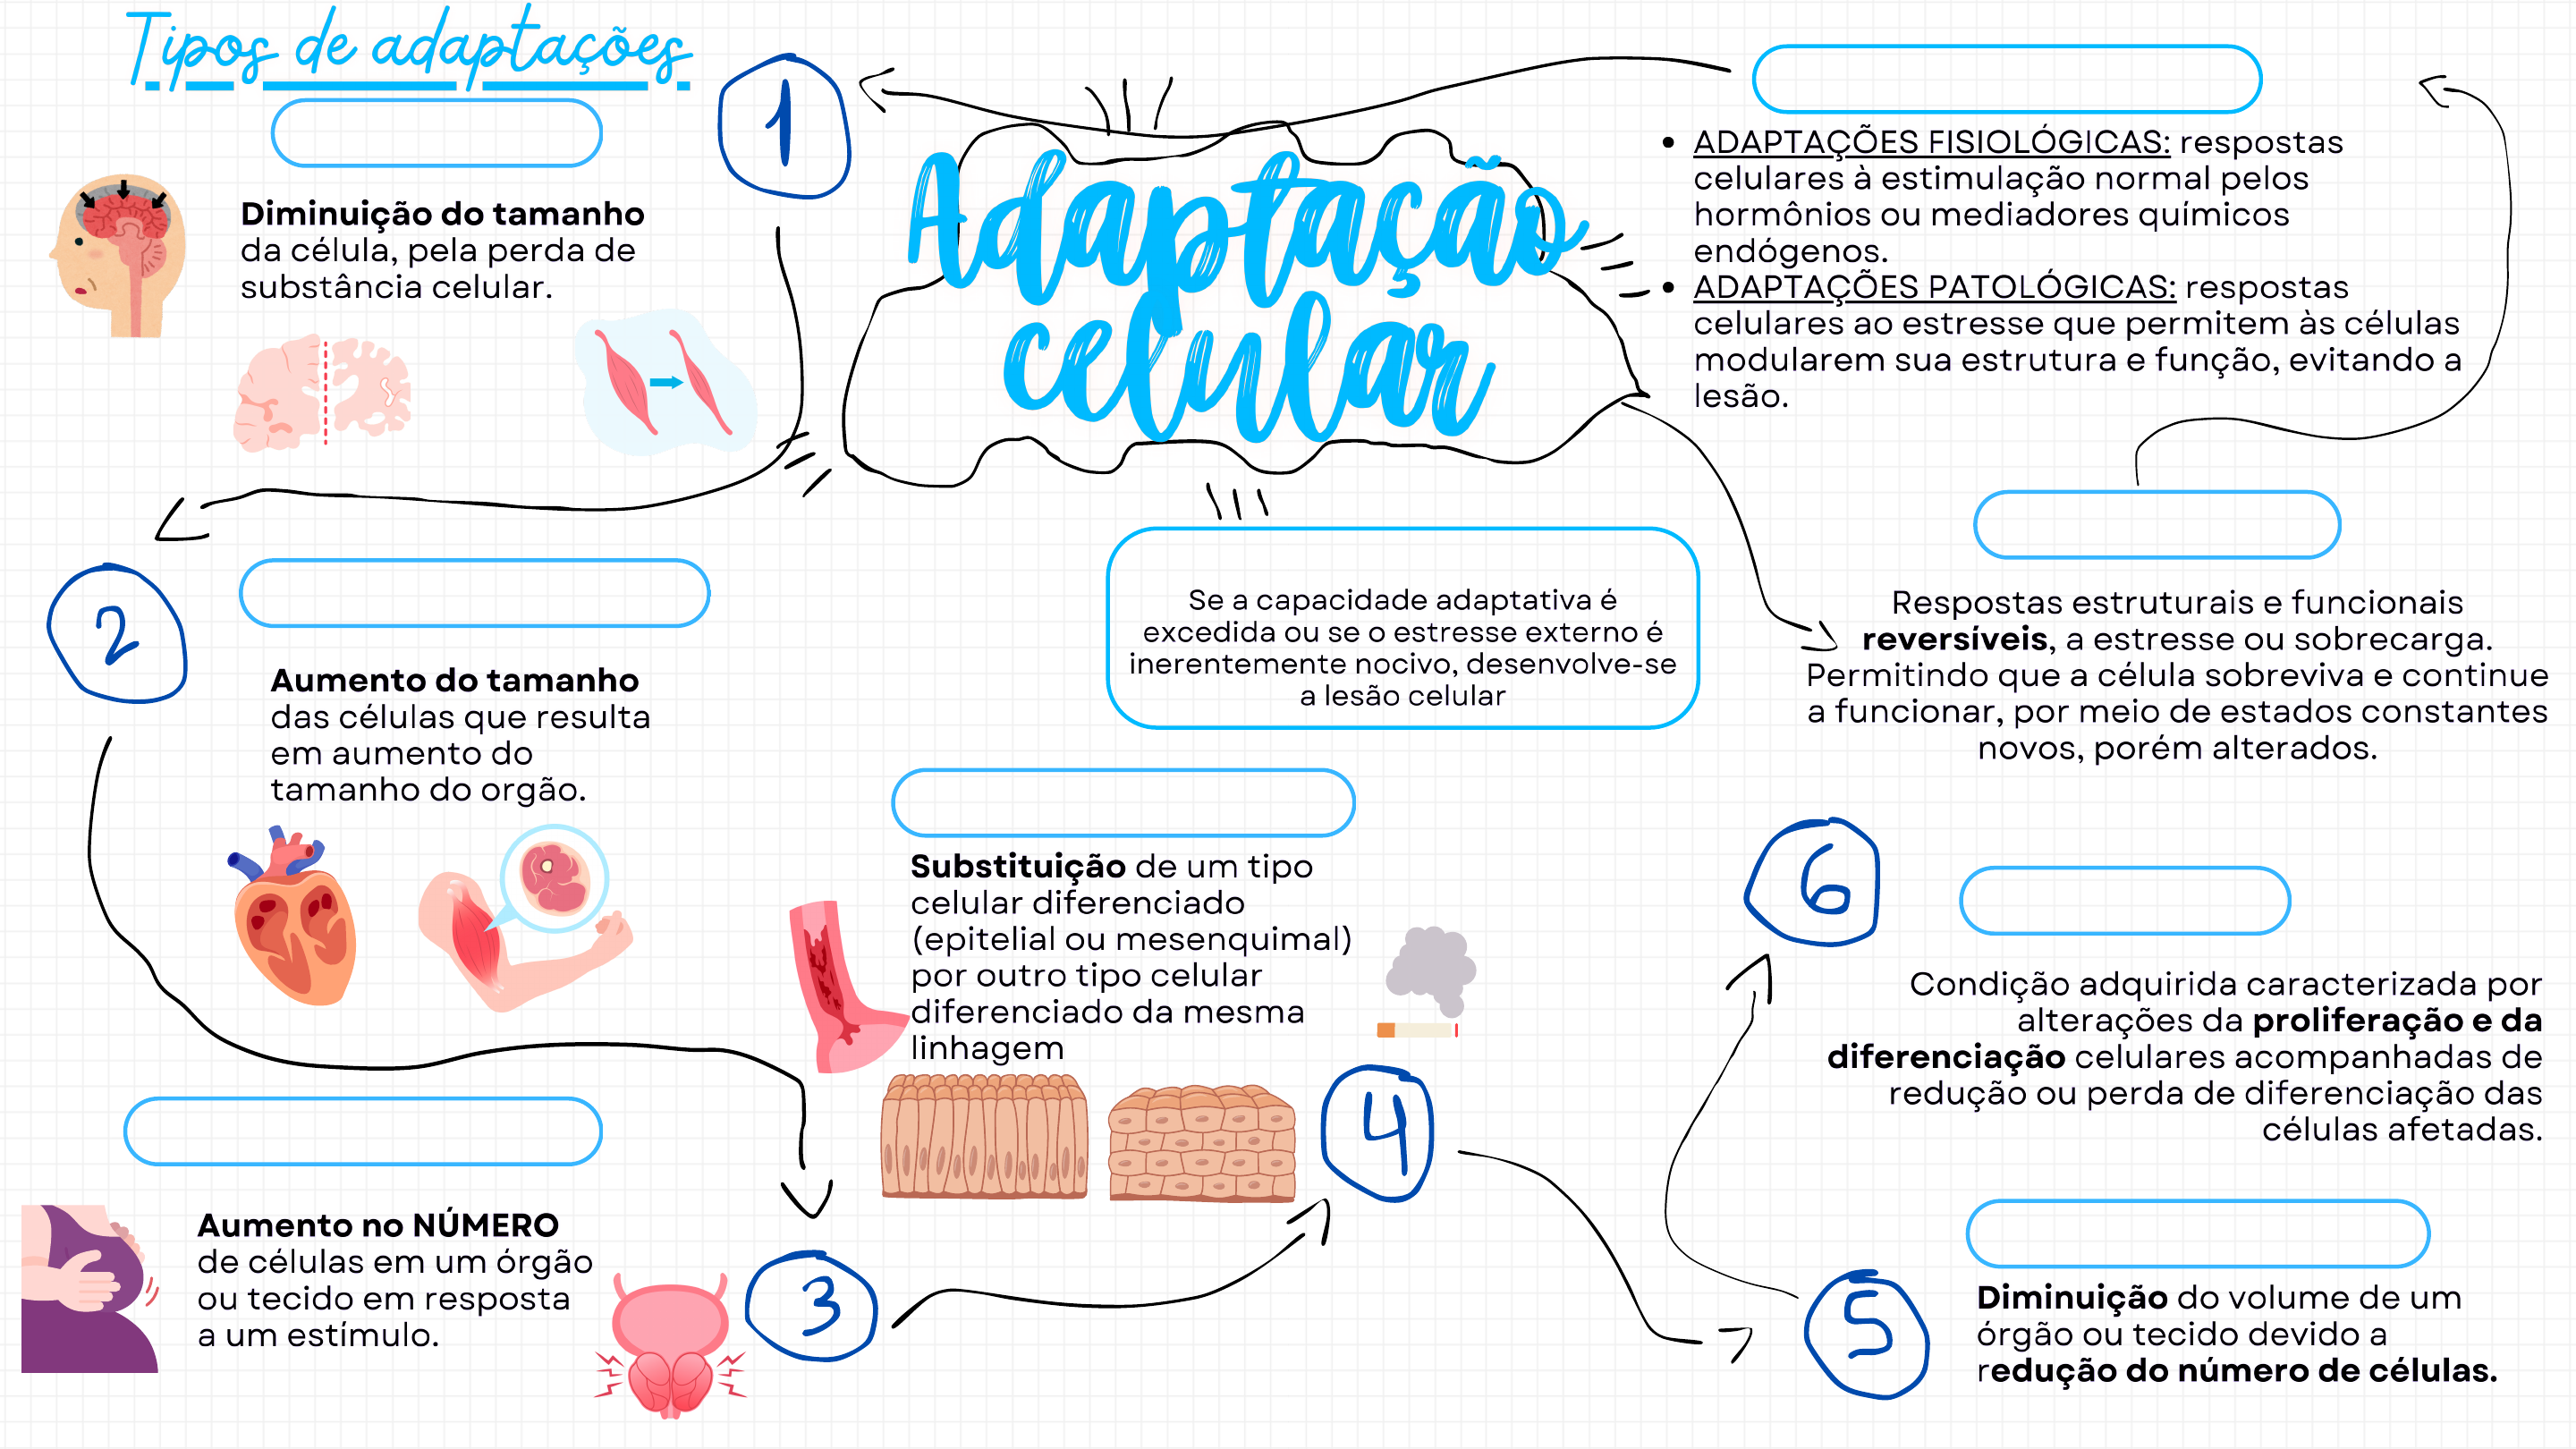 Tipos de adaptações
1
Diminuição do tamanho
da célula, pela perda de
substância celular.
Adaptação
celular
• ADAPTAÇÕES FISIOLÓGICAS: respostas
celulares à estimulação normal pelos
hormônios ou mediadores químicos
endógenos.
• ADAPTAÇÕES PATOLÓGICAS: respostas
celulares ao estresse que permitem às células
modularem sua estrutura e função, evitando a
lesão.
Respostas estruturais e funcionais
reversíveis, a estresse ou sobrecarga.
Permitindo que a célula sobreviva e continue
a funcionar, por meio de estados constantes
novos, porém alterados.
Se a capacidade adaptativa é
excedida ou se o estresse externo é
inerentemente nocivo, desenvolve-se
a lesão celular
2
Aumento do tamanho
das células que resulta
em aumento do
tamanho do orgão.
Aumento no NÚMERO
de células em um órgão
ou tecido em resposta
a um estímulo.
3
Substituição de um tipo
celular diferenciado
(epitelial ou mesenquimal)
por outro tipo celular
diferenciado da mesma
linhagem
4
6
Condição adquirida caracterizada por
alterações da proliferação e da
diferenciação celulares acompanhadas de
redução ou perda de diferenciação das
células afetadas.
5
Diminuição do volume de um
órgão ou tecido devido a
redução do número de células.